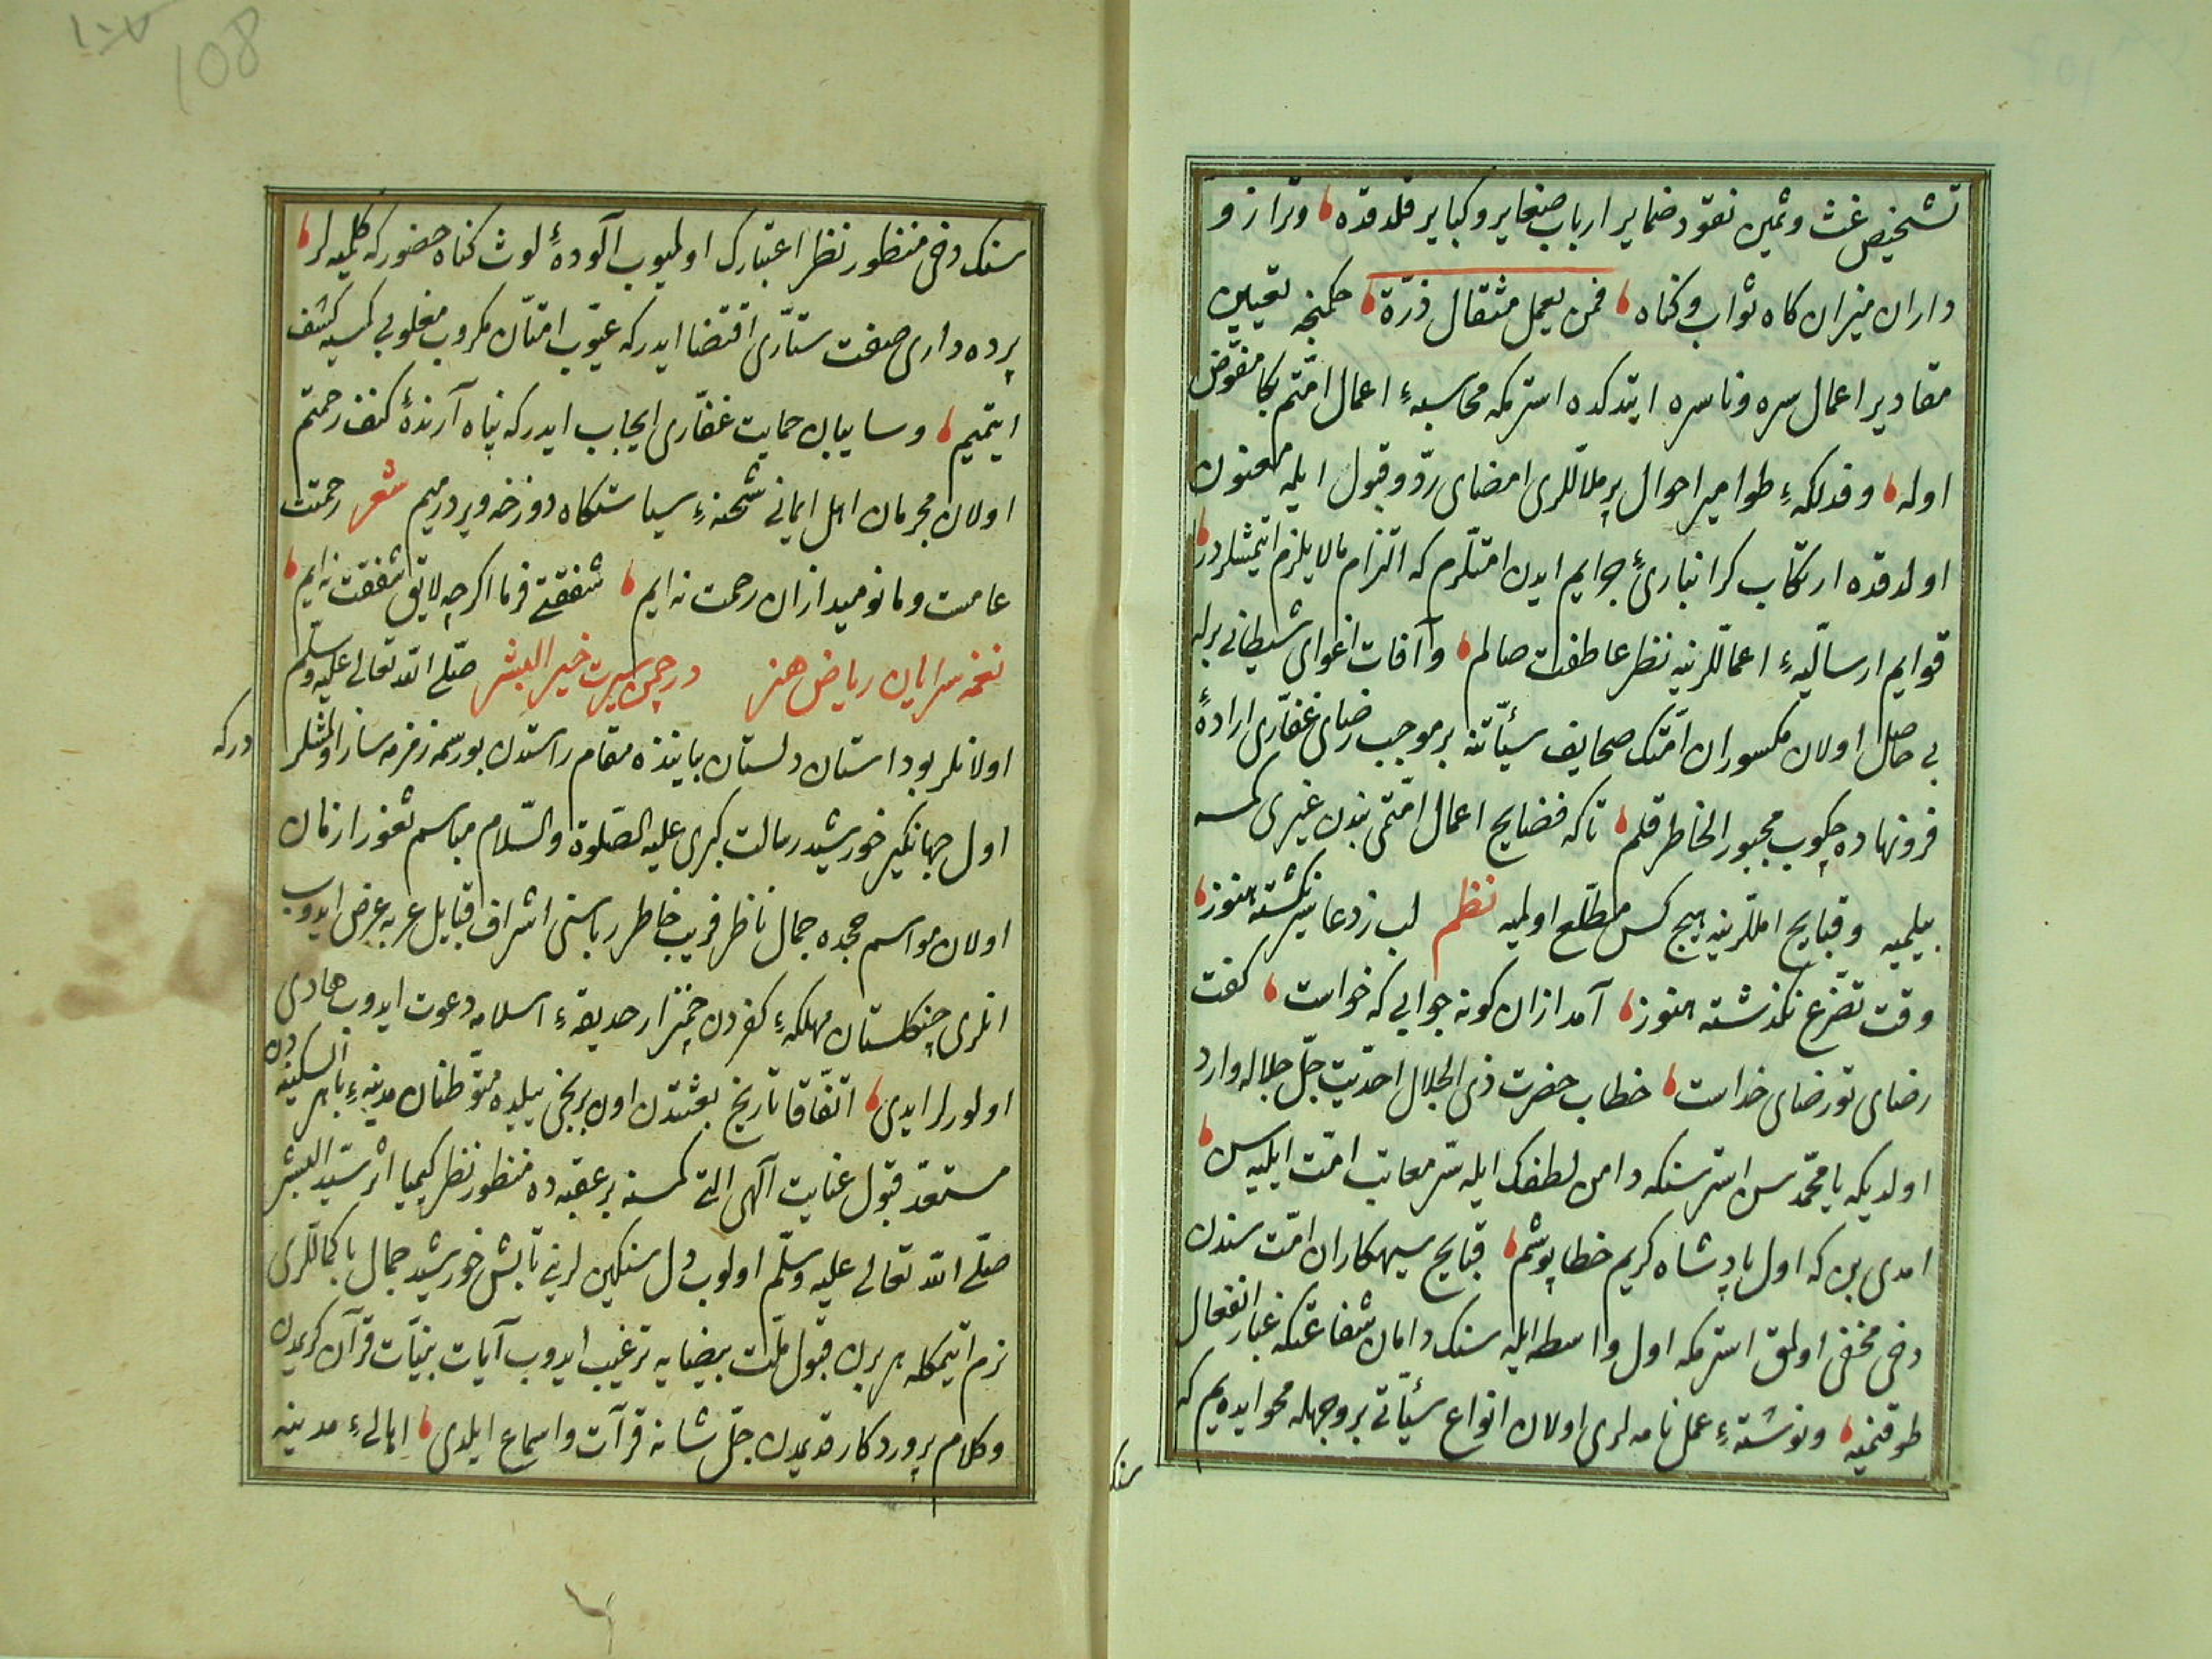 تشخیص غث وثمین نقود ضمایر ارباب صغایر وکبایر قلدقده وترازو
داران میزان کاه ثواب وکناه فمن یعمل مثقال ذرّة حکمنجه تعیین
مقادیر اعمال سره وناسره ایتدکده استرمکه محاسبهٔ اعمال امّتم بکا مفوّض
اوله وفذلکهٔ طوامیر احوال پرملاللری امضای ردّ وقبول ایله معنون
اولدقده ارتکاب کرانبارئ جرایم ایدن امتلرم که التزام مالا یلزم ایتمشلردر
قوایم ارسالیهٔ اعماللرینه نظر عاطفت صالم وآفات اغوای شیطانی برله
بی حاصل اولان مکسوران امّتک صحایف سیأتنه بر موجب رضای غفّاری ارادهٔ
فرونهاده چکوب مجبور الخاطر قلم تاکه فضایح اعمال امّتمی بندن غیری کمسه
بیلمیه وقبایح امللرینه هیچ کس مطّلع اولمیه نظم لب ز دعا سیر نکشته هنوز
وقت تضرع نکذشته هنوز آمد ازان کونه جوابی که خواست کفت
رضای تو رضای خداست خطاب حضرت ذی الجلال احدیت جلّ جلاله وارد
اولدیکه یا محمّد سن استرسنکه دامن لطفک ایله ستر معایب امّت ایلیه سن
امدی بن که اول پادشاه کریم خطاپوشم قبایح سیهکاران امّت سندن
دخی مخفی اولمق استرمکه اول واسطه ایله سنک دامان شفاعتکه غبار انفعال
طوقنمیه ونوشتهٔ عمل نامه لری اولان انواع سیأتی بر وجهله محو ایده یم که
سنک
١٠٨
108
سنک دخی منظور نظر اعتبارک اولمیوب آلودهٔ لوث کناه حضورکه کلمیه لر
پرده داری صفت ستّاری اقتضا ایدرکه عیوب امّتان مکروب مغلوبی کمسیه کشف
ایتمیم وسایبان حمایت غفّاری ایجاب ایدرکه پناه آرندهٔ کنف رحمتم
اولان مجرمان اهل ایمانی شحنهٔ سیاستکاه دوزخه ویردرمیم شعر رحمتت
عامست وما نومید ازان رحمت نه ایم شفقتی فرما اکرچه لایق شفقت نه ایم
نغمه سرایان ریاض هنر در چمن سیرت خیر البشر صلّی الله تعالی علیه وسلّم
اولانلر بو داستان دلستان بابنده مقام راستدن بو رسمه زمزمه ساز اولمشلر
درکه
اول جهانکیر خورشید رسالت کبری علیه الصّلوة والسّلام مباسم ثغور ازمان
اولان مواسم حجده جمال ناظر فریب خاطر رباسنی اشراف قبایل عربه عرض ایدوب
انلری چنکلستان مهلکهٔ کفردن چمنزار حدیقهٔ اسلامه دعوت ایدوب هادی
اولورلر ایدی اتّفاقا تاریخ بعثتدن اون برنجی ییلده متوطنان مدینهٔ باهر السکینه دن
مستعدّ قبول عنایت آلهی التی کمسنه بر عقبه ده منظور نظر کیمیا اثر سیّد البشر
صلّی الله تعالی علیه وسلّم اولوب دل سنکین لرینی تابش خورشید جمال باکماللری
نرم ایتمکله هر برین قبول ملّت بیضایه ترغیب ایدوب آیات بیّنات قرآن کریمدن
وکلام پروردکار قدیمدن جلّ شانه قرآت واسماع ایلدی اهالیٔ مدینه